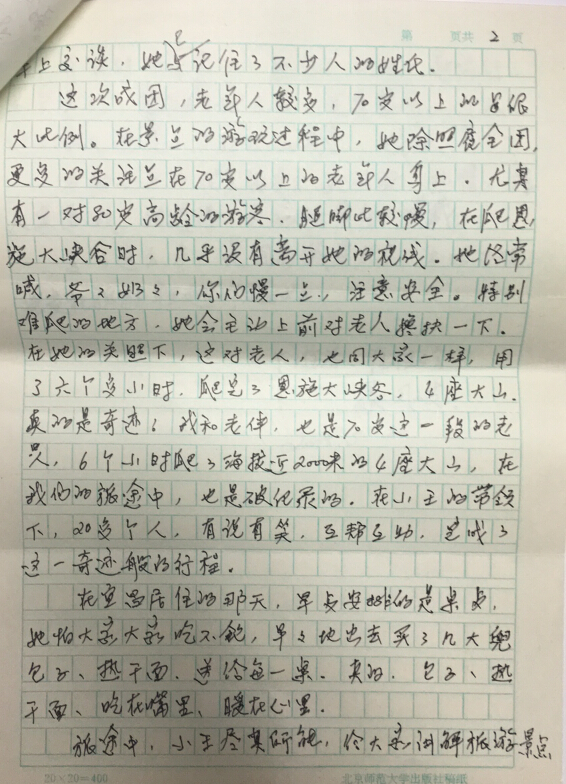 第 页共 2 页
车上交谈，她已记住了不少人的姓氏。
这次成团，老年人较多，70岁以上的占很
大比例。在景点的游玩过程中，她除照应全团，
更多的关注点在70岁以上的老年人身上。尤其
有一对80岁高龄的游客，腿脚比较慢，在爬恩
施大峡谷时，几乎没有离开她的视线。她经常
喊，爷々奶々，你们慢一点，注意安全。特别
难爬的地方，她会主动上前对老人搀扶一下。
在她的关照下，这对老人，也同大家一样，用
了六个多小时，爬完了恩施大峡谷，4座大山，
真的是奇迹；我和老伴，也是70岁这一段的老
人，6个小时爬了海拔近2000米的4座大山，在
我们的旅途中，也是破纪录的。在小王的带领
下，20多个人，有说有笑，互帮互助，完成了
这一奇迹般的行程。
在宜昌居住的那天，早点安排的是桌点，
她怕大家吃不饱，早々地出去买了几大兜
包子、热干面，送给每一桌。真的，包子、热
干面、吃在嘴里、暖在心里。
旅途中，小王尽其所能，给大家讲解旅游景点
20×20=400 北京师范大学出版社稿纸